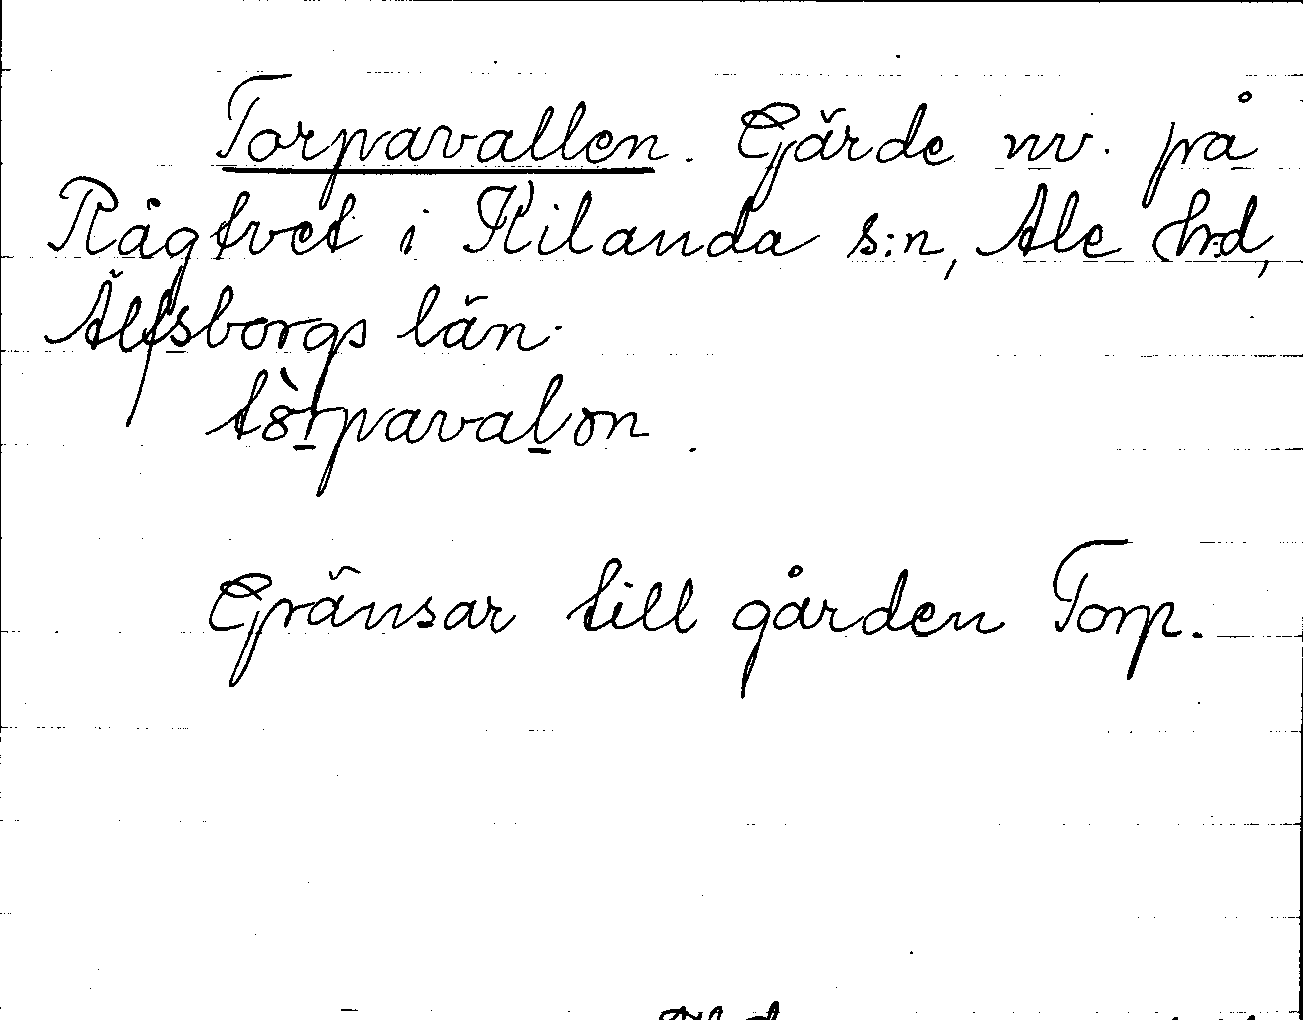 Torpavallen. Gärde nv. på
Rågtvet i Kilanda s:n, Ale h:d,
Älfsborgs län.
tòrpavalɘn.
Gränsar till gården Torp.